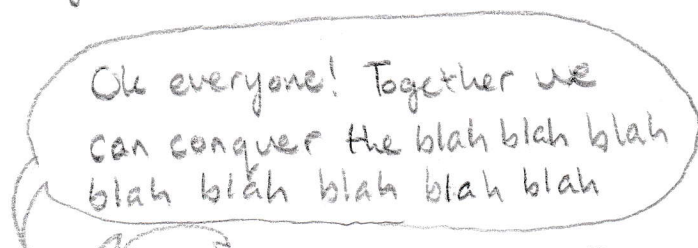 Ok everyone! Together we
can conquer the blah blah blah
blah blah blah blah blah